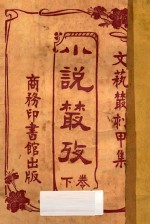 文藝叢刻甲集
小說叢攷
卷下
商務印書館出版